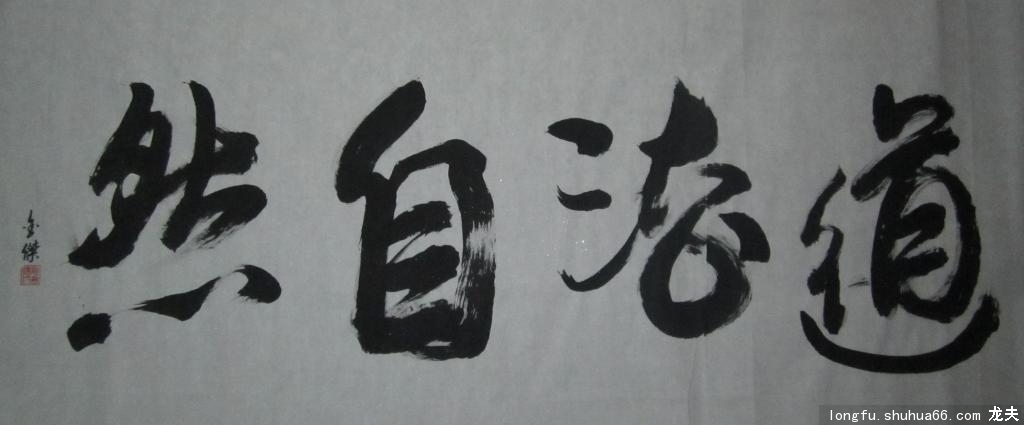 道法自然
金傑
longfu.shuhua66.com 龙夫